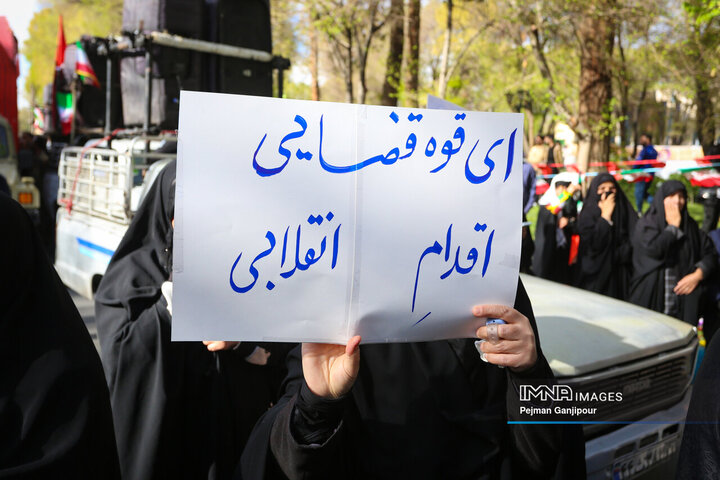 ای قوه قضایی
اقدامِ انقلابی
IMNA IMAGES
Pejman Ganjipour